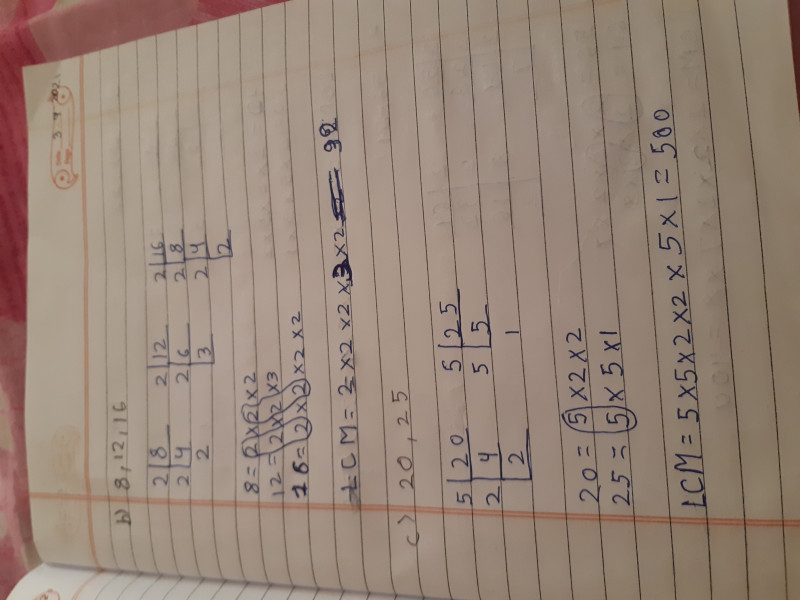 3.4.2021
b) 8, 12, 16
2|8 2|12 2|16
2|4 2|6 2|8
2 |3 2|4
|2
8 = 2 × 2 × 2
12 = 2 × 2 × 3
16 = 2 × 2 × 2 × 2
LCM = 2 × 2 × 2 × 3 × 2 = 98
c) 20, 25
5|20 5|25
2|4 5|5
|2 1
20 = 5 × 2 × 2
25 = 5 × 5 × 1
LCM = 5 × 5 × 2 × 2 × 5 × 1 = 500